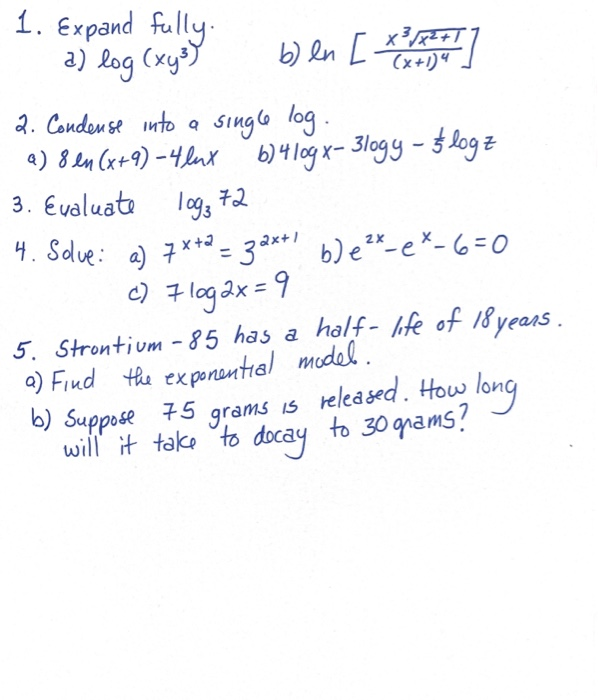 1. Expand fully.
a) log (xy³)    b) ln [ x³√(x²+1) / (x+1)⁴ ]
2. Condense into a single log.
a) 8 ln (x+9) - 4 ln x    b) 4 log x - 3 log y - 1/5 log z
3. Evaluate log₃ 72
4. Solve: a) 7^(x+2) = 3^(2x+1)    b) e^(2x) - e^x - 6 = 0
c) 7 log 2x = 9
5. Strontium - 85 has a half-life of 18 years.
a) Find the exponential model.
b) Suppose 75 grams is released. How long
will it take to docay to 30 grams?